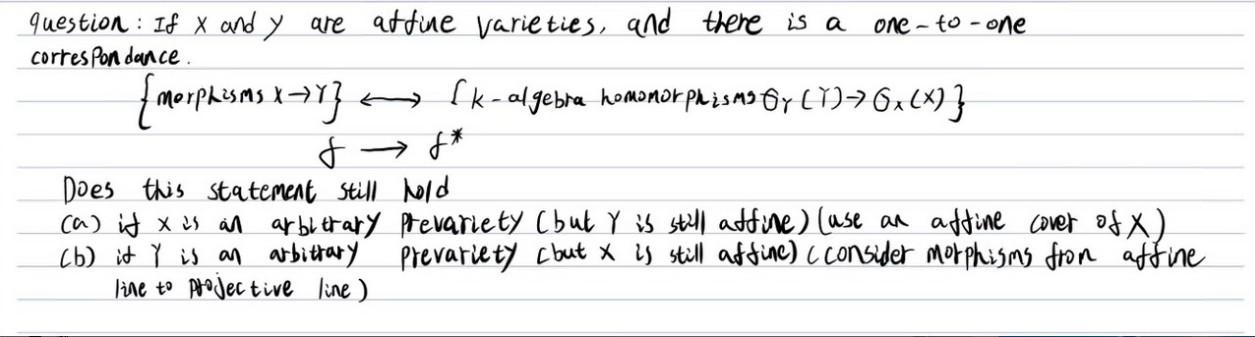 question : If X and Y are affine varieties, and there is a one-to-one
correspondance.
{morphisms X→Y} ⟷ {k-algebra homomorphisms 𝒪_Y(Y)→𝒪_X(X)}
f → f*
Does this statement still hold
(a) if X is an arbitrary prevariety (but Y is still affine) (use an affine cover of X)
(b) if Y is an arbitrary prevariety (but X is still affine) (consider morphisms from affine
line to projective line)